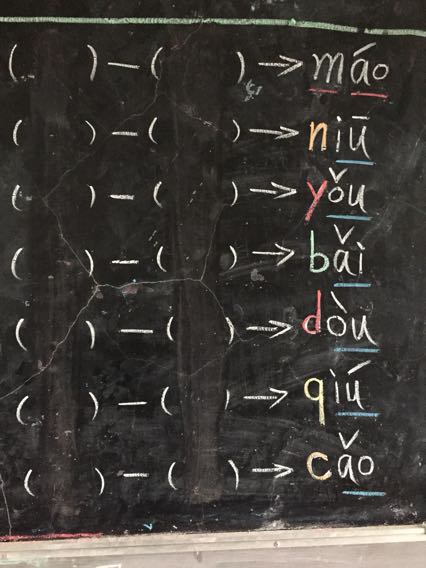 ( ) — ( ) → máo
( ) — ( ) → niū
( ) — ( ) → yǒu
( ) — ( ) → bǎi
( ) — ( ) → dòu
( ) — ( ) → qiú
( ) — ( ) → cǎo